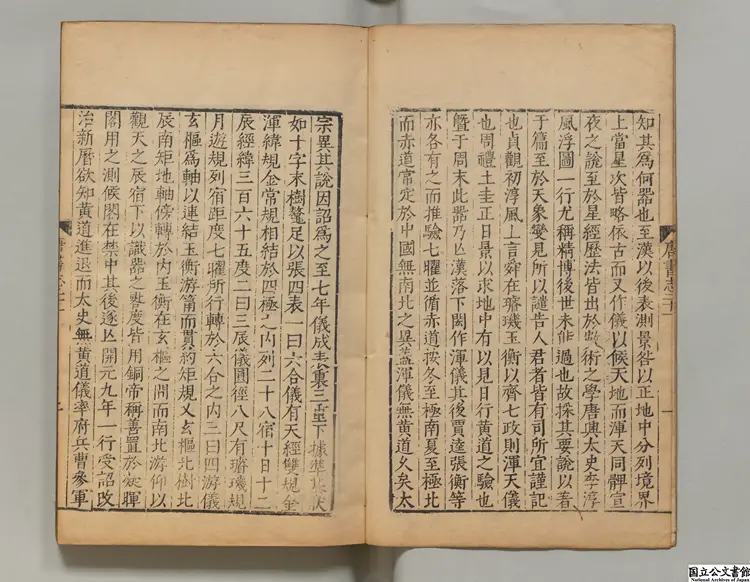 知其爲何器也至漢以後表測景晷以正地中分列境界
上當星次皆略依古而又作儀以候天地而渾天周髀宣
夜之說至於星經歷法皆出於數術之學唐興太史李淳
風浮圖一行尤稱精博後世未能過也故採其要說以著
于篇至於天象變見所以譴告人君者皆有司所宜謹記
也貞觀初淳風上言舜在璿璣玉衡以齊七政則渾天儀
也周禮土圭正日景以求地中有以見日行黃道之驗也
曁于周末此器乃亡漢落下閎作渾儀其後賈逵張衡等
亦各有之而推驗七曜並循赤道按冬至極南夏至極北
而赤道常定於中國無南北之異蓋渾儀無黃道久矣太
宗異其說因詔爲之至七年儀成表裏三重下據準基狀
如十字末樹鼇足以張四表一曰六合儀有天經雙規金
渾緯規金常規相結於四極之內列二十八宿十日十二
辰經緯三百六十五度二曰三辰儀圓徑八尺有璿璣規
月遊規列宿距度七曜所行轉於六合之內三曰四游儀
玄樞爲軸以連結玉衡游筩而貫約矩規又玄樞北樹北
辰南矩地軸傍轉於內玉衡在玄樞之間而南北游仰以
觀天之辰宿下以識器之晷度皆用銅帝稱善置於凝暉
閣用之測候閣在禁中其後遂亡開元九年一行受詔改
治新曆欲知黃道進退而太史無黃道儀率府兵曹參軍
国立公文書館
National Archives of Japan